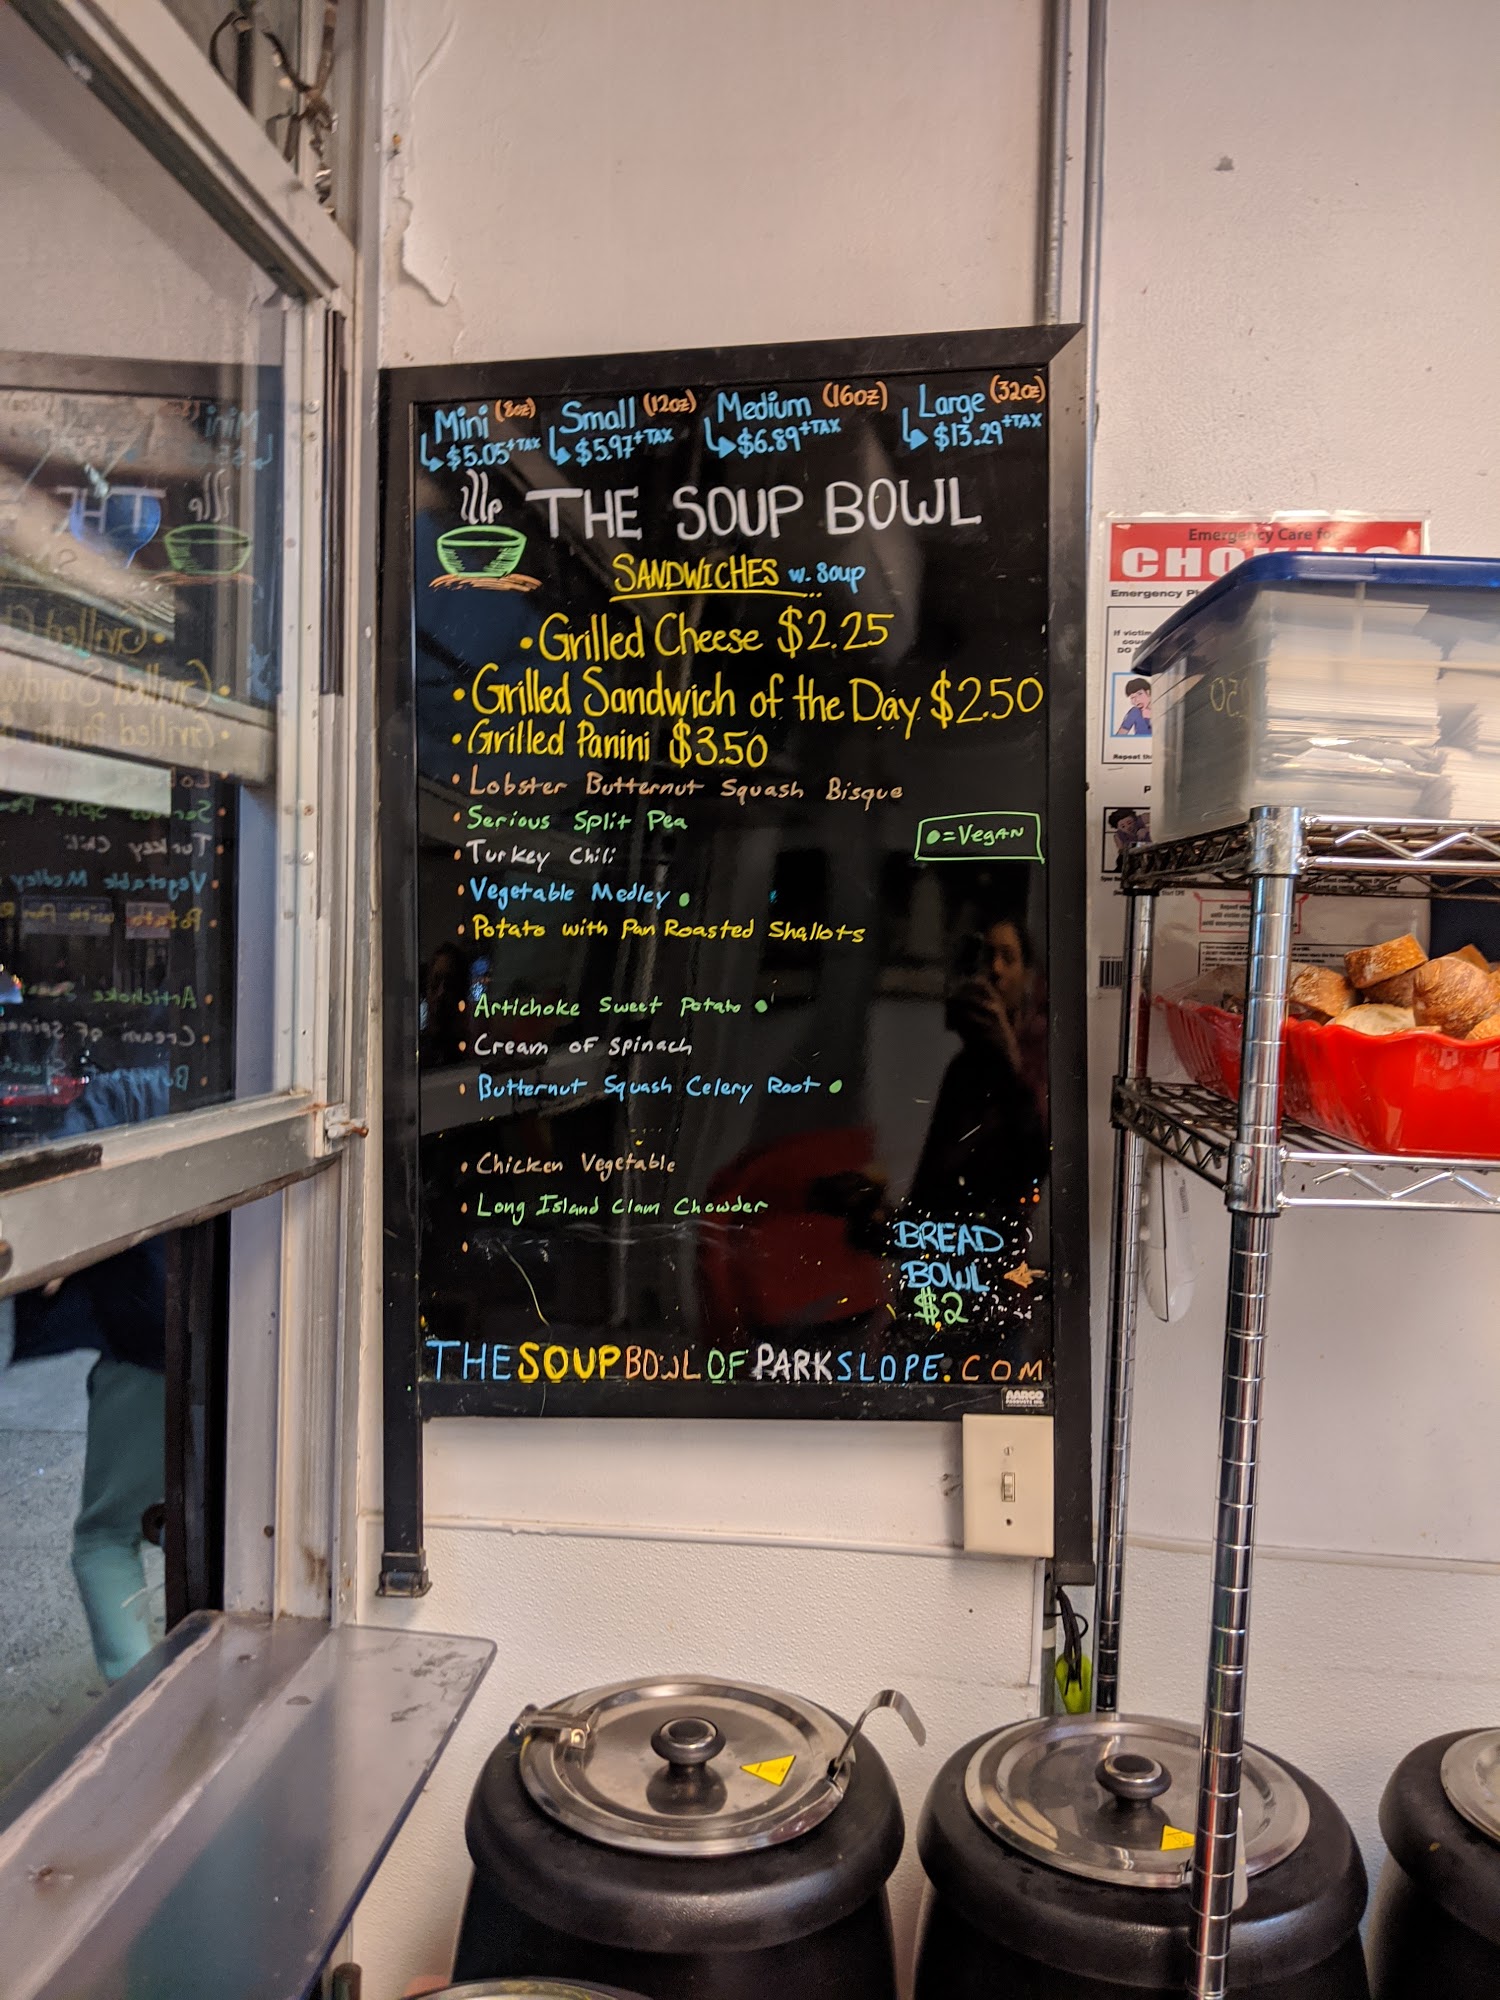 Mini (8oz) Small (12oz) Medium (16oz) Large (32oz)
$5.05+TAX $5.97+TAX $6.89+TAX $13.29+TAX
THE SOUP BOWL
SANDWICHES w. Soup
• Grilled Cheese $2.25
• Grilled Sandwich of the Day $2.50
• Grilled Panini $3.50
• Lobster Butternut Squash Bisque
• Serious Split Pea
●=VEGAN
• Turkey Chili
• Vegetable Medley ●
• Potato with Pan Roasted Shallots
• Artichoke Sweet Potato ●
• Cream of Spinach
• Butternut Squash Celery Root ●
• Chicken Vegetable
• Long Island Clam Chowder
BREAD
BOWL
$2
THESOUPBOWLOFPARKSLOPE.COM
AARCO
Emergency Care for
CHO
Emergency
If victim
DO
Repeat